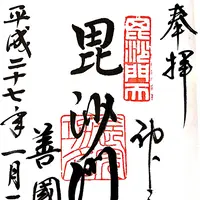 奉拝
神楽
毘沙門
善國
平成二十七年一月一
毘沙門天